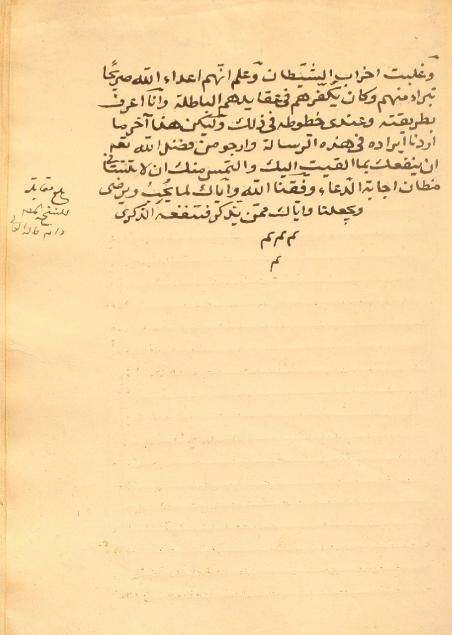 وغلبت احزاب الشيطان وعلم انهم اعداء الله صريحا
تبراء منهم وكان يكفرهم في عقايدهم الباطلة وانا اعرف
بطريقته وعندى خطوطه في ذلك وليكن هذا آخر ما
اردنا ايراده في هذه الرسالة وارجو من فضل الله تعم
ان ينفعك بما القيت اليك والتمس منك ان لا تنساني
مظان اجابة الدعاء وفقنا الله واياك لما يحب ويرضى
ويجعلنا واياك ممن يتذكر فتنفعه الذكرى
تم تم تم
تم
بلغ مقابلة